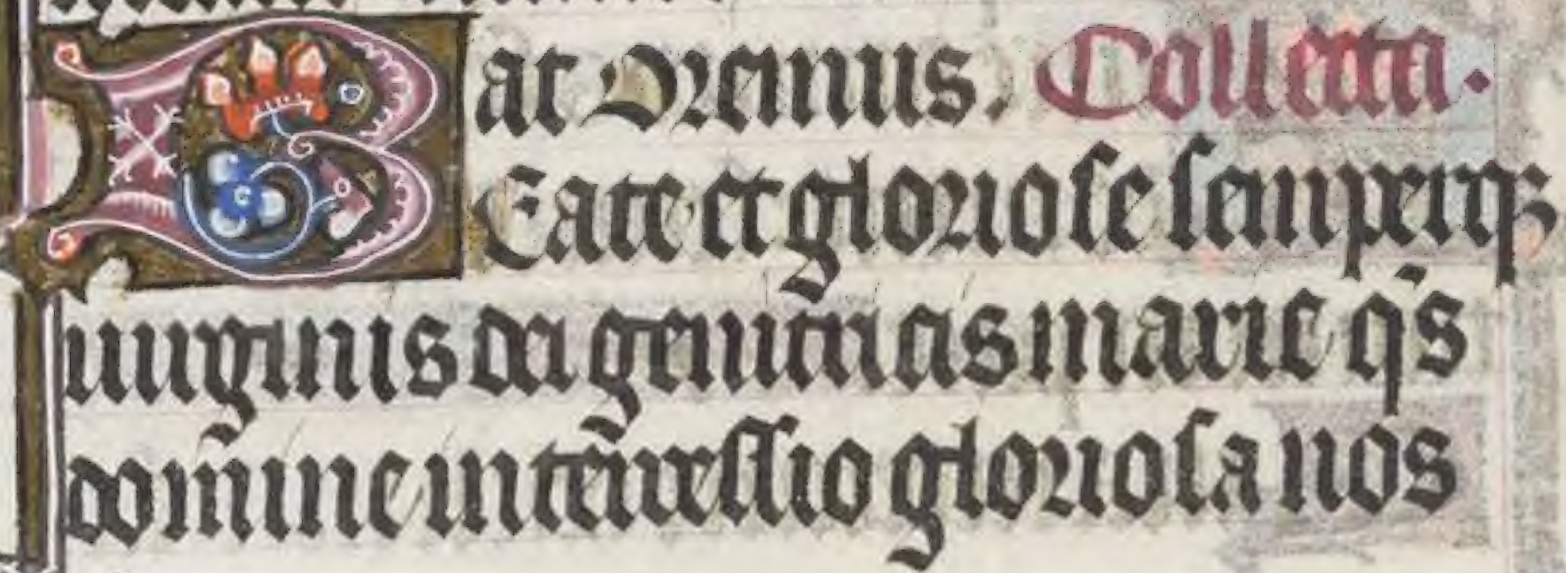 at Oremus. Collecta.
BEate et gloriose semperqꝫ
uirginis dei genitricis marie q̄s
domine intercessio gloriosa nos